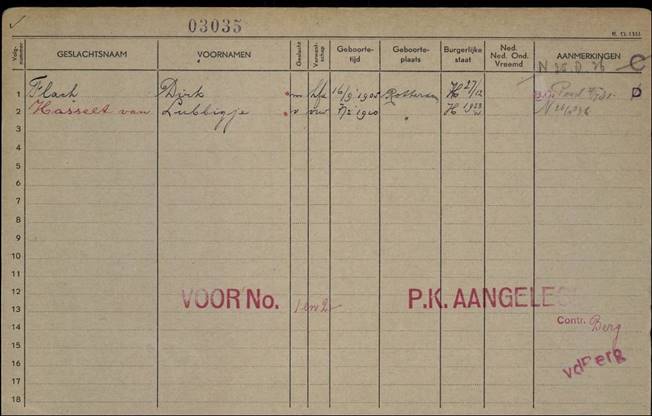 03035
Volgnummer GESLACHTSNAAM VOORNAMEN Geslacht Verwantschap Geboortetijd Geboorteplaats Burgerlijke staat Ned. Ned. Ond. Vreemd AANMERKINGEN
N 36 D 36 C
1 Flach Dirk m hfd 16/9 1905 Rotterdam H 27/12
2 Hasselt van Lubbigje v vrw 1910 " H 1933
3
4
5
6
7
8
9
10
11
12
13 VOOR No. 1 en 2 P.K. AANGELE
14 Contr. Berg
15
16 vdBerg
17
18